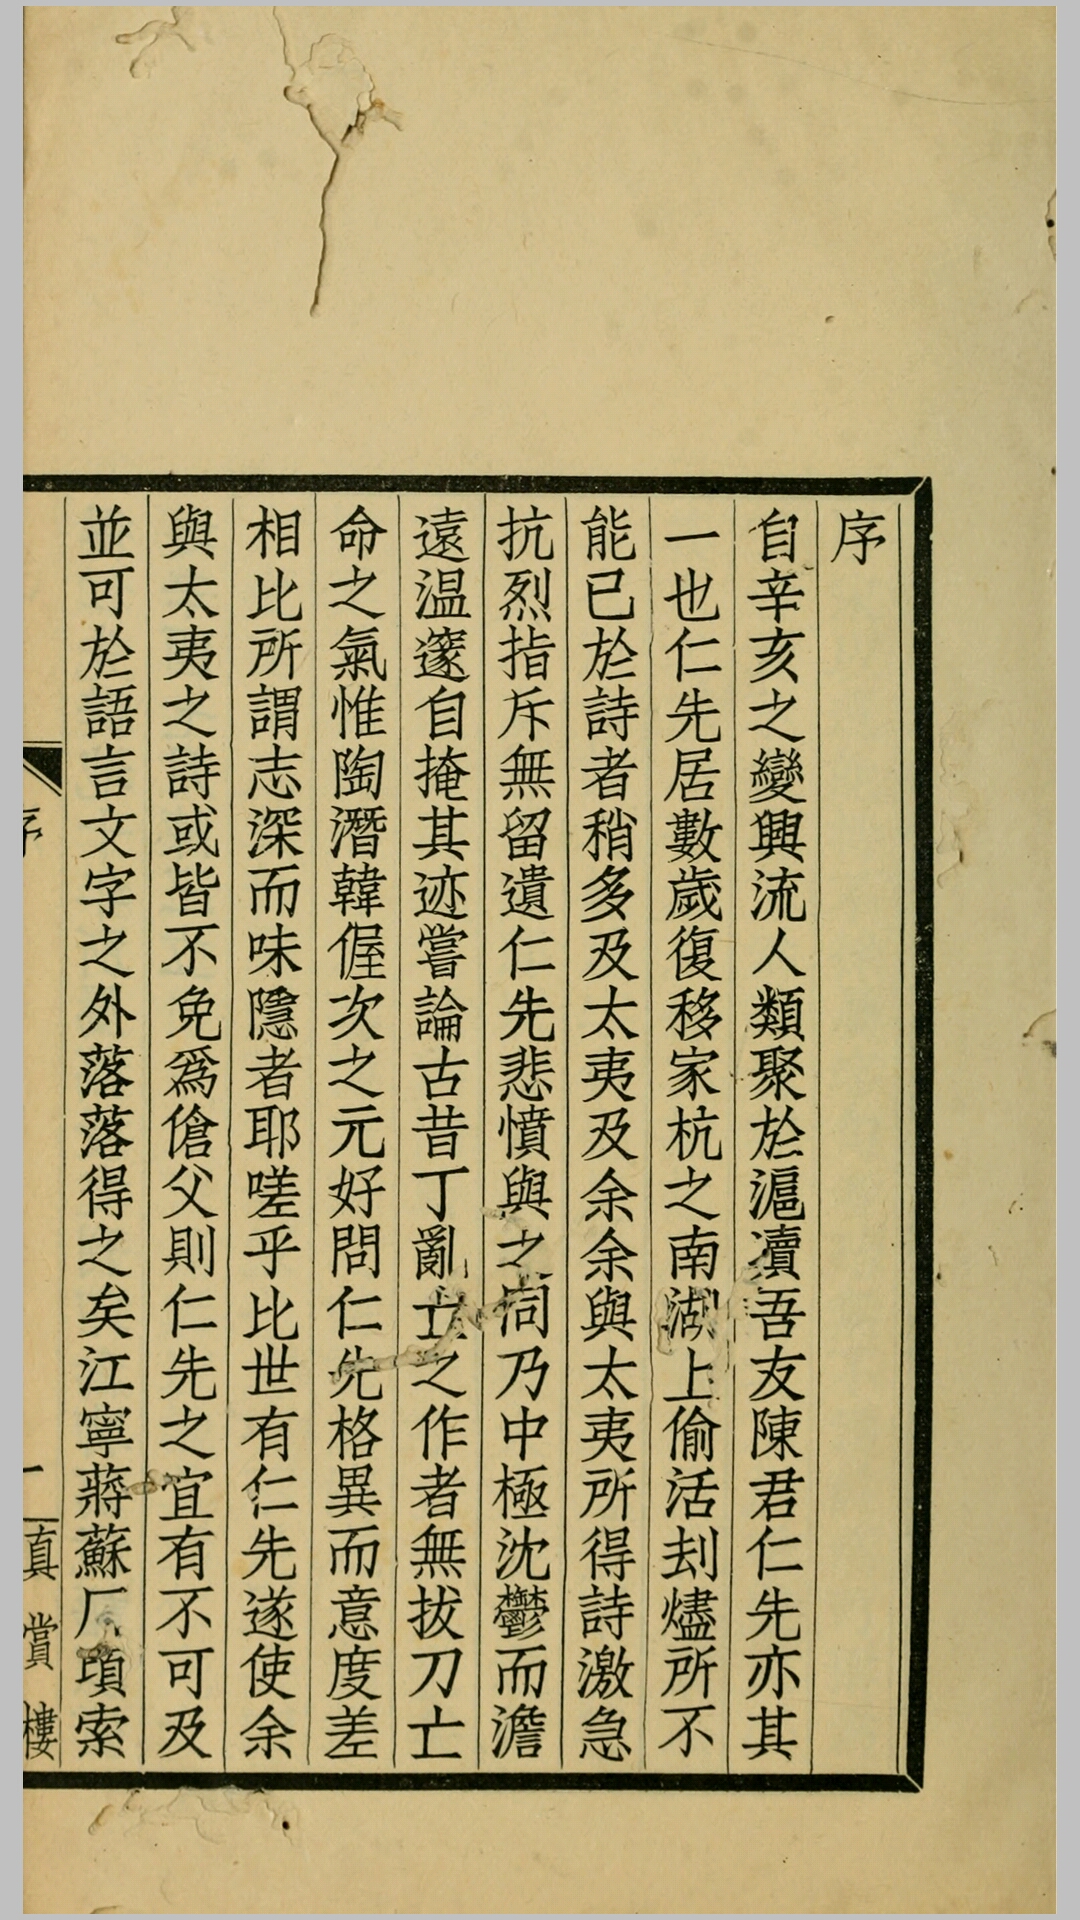 序
自辛亥之變興流人類聚於滬瀆吾友陳君仁先亦其
一也仁先居數歲復移家杭之南湖上偷活刦燼所不
能已於詩者稍多及太夷及余余與太夷所得詩激急
抗烈指斥無留遺仁先悲憤與之同乃中極沈鬱而澹
遠温邃自掩其迹嘗論古昔丁亂亡之作者無拔刀亡
命之氣惟陶潛韓偓次之元好問仁先格異而意度差
相比所謂志深而味隱者耶嗟乎比世有仁先遂使余
與太夷之詩或皆不免爲傖父則仁先之宜有不可及
並可於語言文字之外落落得之矣江寧蔣蘇厂項索
序
一
真賞樓